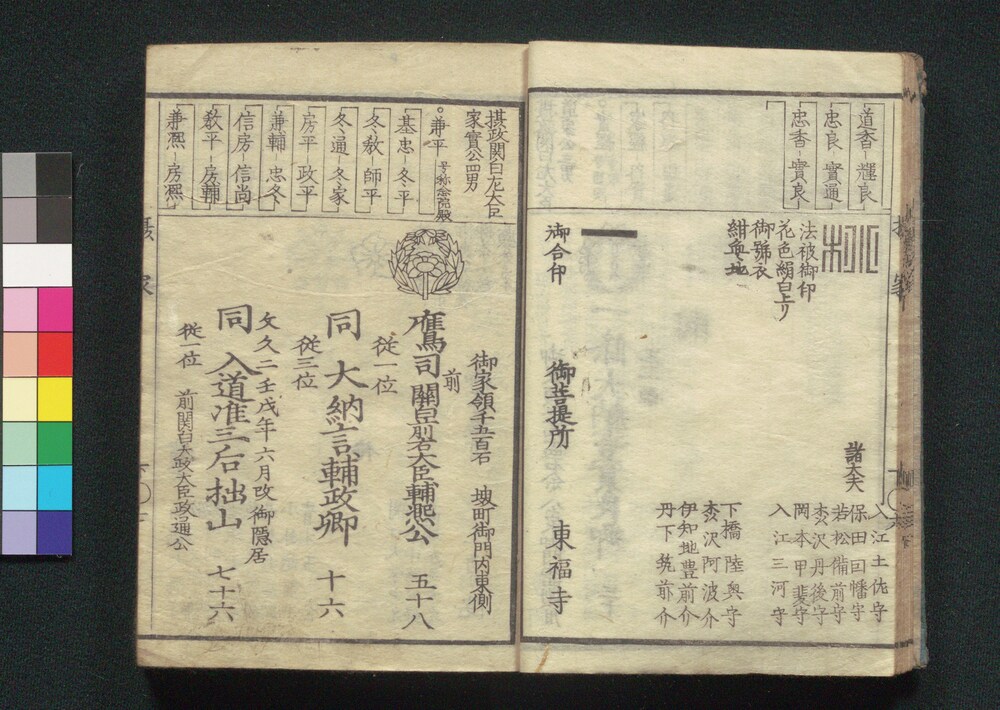 道香 輝良
忠良 實通
忠香 實良
法被御印
花色絹白上り
御號衣
紺無地
御合印
御菩提所 東福寺
諸大夫
入江土佐守
保田因幡守
若松備前守
松沢丹後守
岡本甲斐守
入江三河守
下橋陸奥守
松沢阿波介
伊知地豊前介
丹下筑前介
摂政関白左大臣
家實公四男
兼平 号称念院殿
基忠 冬平
冬教 師平
冬通 冬家
房平 政平
兼輔 忠冬
信房 信尚
教平 房輔
兼熈 房熈
御家領千五百石 堺町御門内東側
前
鷹司關白左大臣輔熈公 五十八
従一位
同 大納言輔政卿 十六
従三位
文久二壬戌年六月改御隠居
同 入道准三后拙山 七十六
従一位 前関白大政大臣政通公